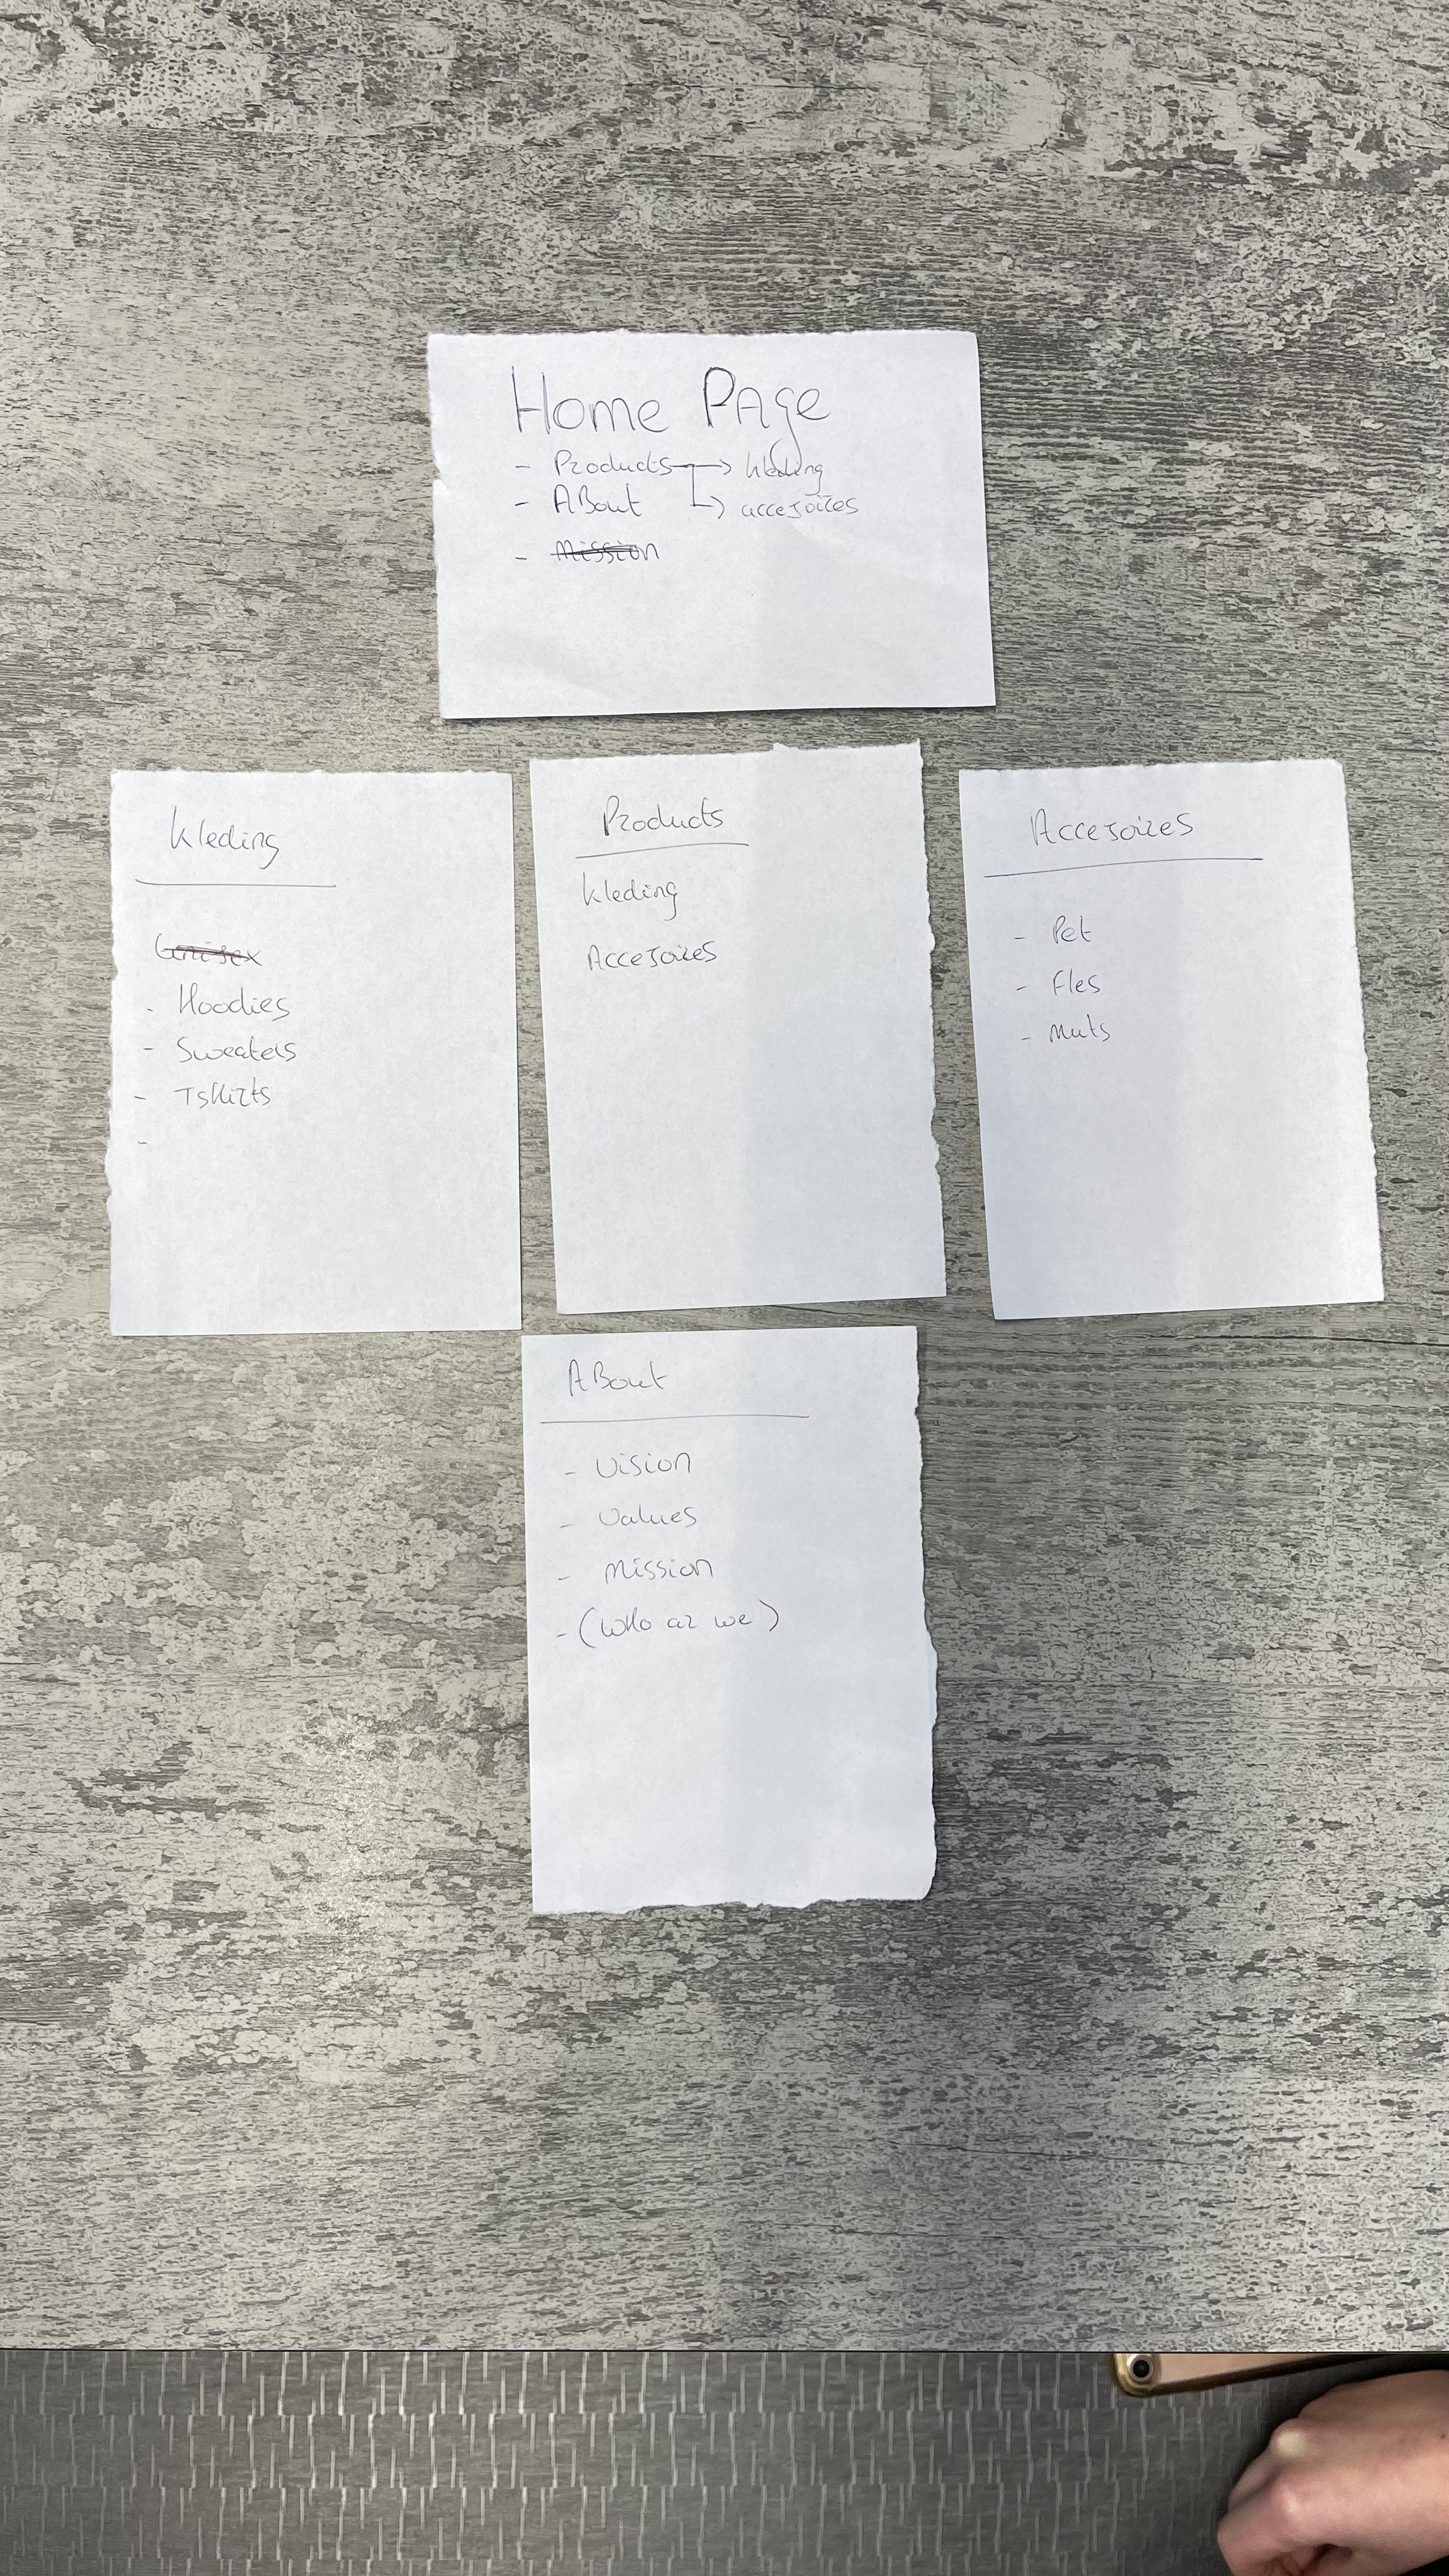 Home Page
- Products → kleding
- ABout → accesoires
- Mission
kleding
Unisex
- Hoodies
- Sweaters
- Tshirts
-
Products
kleding
Accesoires
Accesoires
- Pet
- fles
- muts
ABout
- Vision
- Values
- Mission
- (Who ar we)